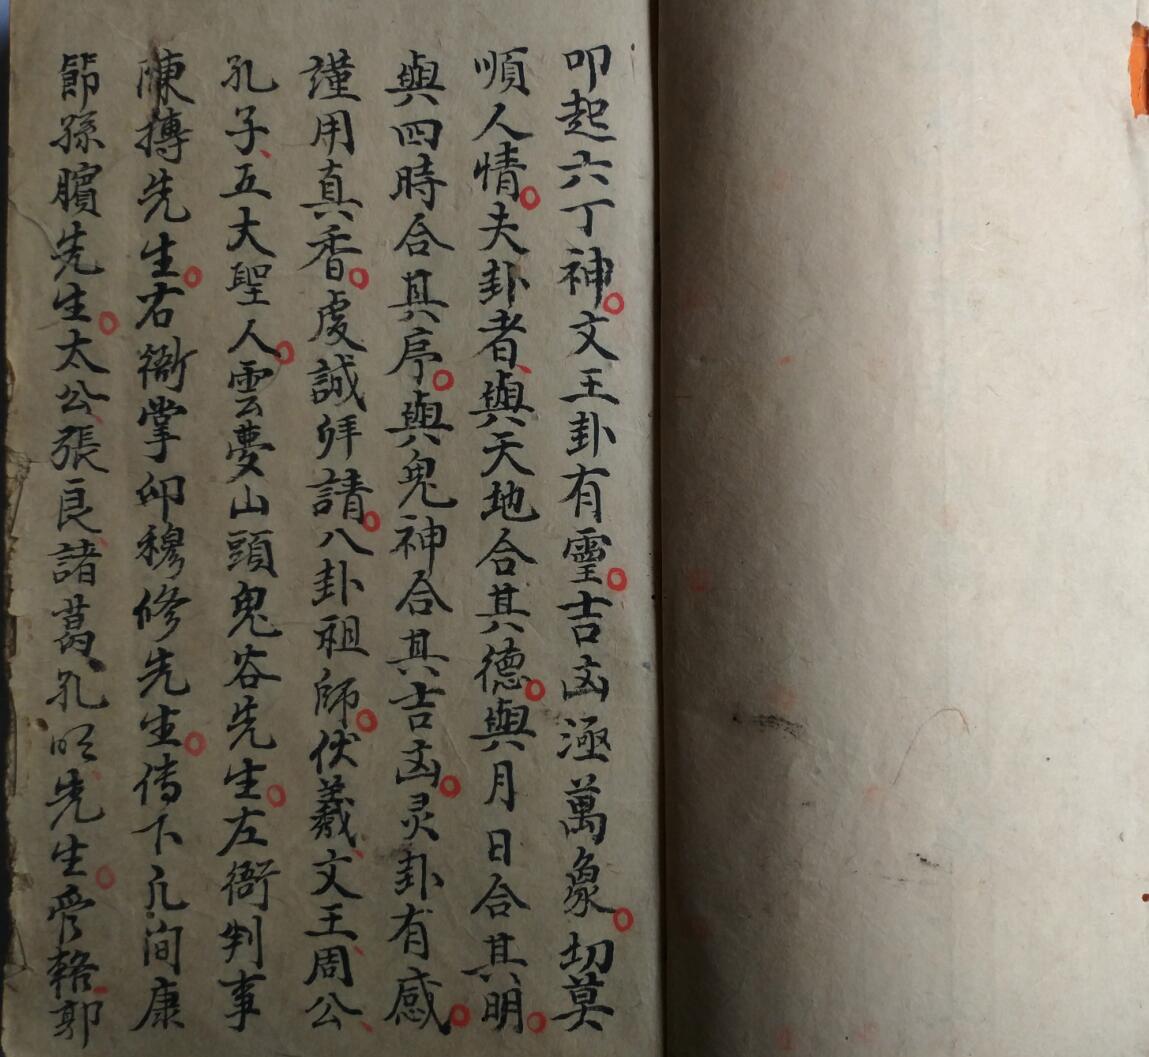 叩起六丁神。文王卦有霊。吉凶涇萬象。切莫
順人情。夫卦者、與天地合其德。與月日合其明。
與四時合其序。與鬼神合其吉凶。灵卦有感。
謹用真香。虔誠拜請。八卦祖師。伏羲、文王、周公、
孔子、五大聖人。雲夢山頭鬼谷先生。左衙判事
陳摶先生。右衙掌印穆修先生。传下凢间康
節孫臏先生。太公、張良、諸葛孔明先生。管輅、郭